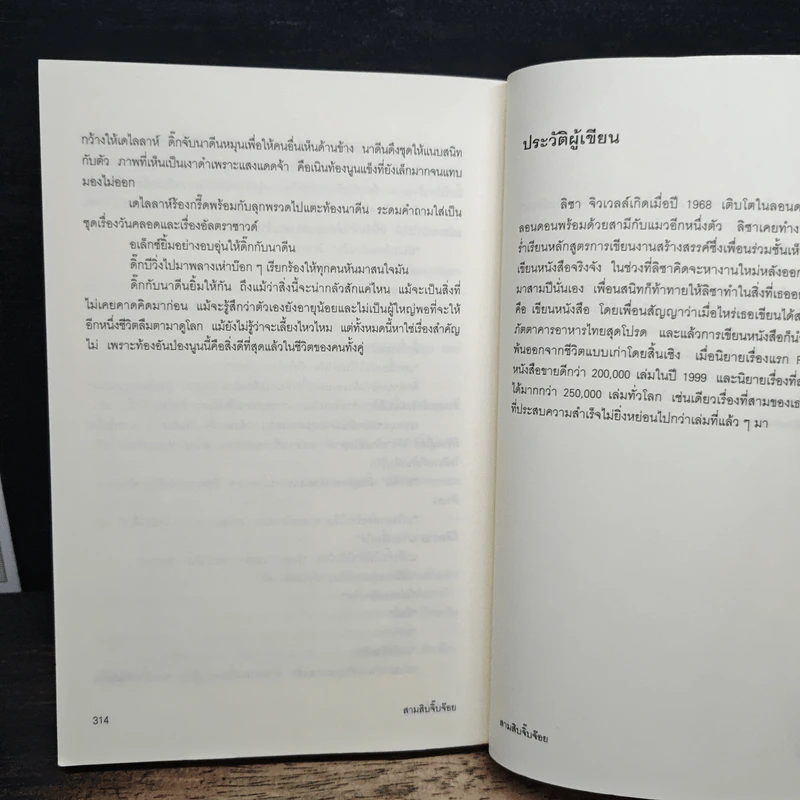 กว้างให้เดไลลาห์ ดิ๊กจับนาดีนหมุนเพื่อให้คนอื่นเห็นด้านข้าง นาดีนดึงชุดให้แนบสนิท
กับตัว ภาพที่เห็นเป็นเงาดำเพราะแสงแดดจ้า คือเนินท้องนูนแข็งที่ยังเล็กมากจนแทบ
มองไม่ออก
เดไลลาห์ร้องกรี๊ดพร้อมกับลุกพรวดไปแตะท้องนาดีน ระดมคำถามใส่เป็น
ชุดเรื่องวันคลอดและเรื่องอัลตราซาวด์
อเล็กซ์ยิ้มอย่างอบอุ่นให้ดิ๊กกับนาดีน
ดิ๊กบีวิ่งไปมาพลางเห่าบ๊อก ๆ เรียกร้องให้ทุกคนหันมาสนใจมัน
ดิ๊กกับนาดีนยิ้มให้กัน ถึงแม้ว่าสิ่งนี้จะน่ากลัวสักแค่ไหน แม้จะเป็นสิ่งที่
ไม่เคยคาดคิดมาก่อน แม้จะรู้สึกว่าตัวเองยังอายุน้อยและไม่เป็นผู้ใหญ่พอที่จะให้
อีกหนึ่งชีวิตลืมตามาดูโลก แม้ยังไม่รู้ว่าจะเลี้ยงไหวไหม แต่ทั้งหมดนี้หาใช่เรื่องสำคัญ
ไม่ เพราะท้องอันป่องนูนนี้คือสิ่งดีที่สุดแล้วในชีวิตของคนทั้งคู่
314
สามสิบจิ๊บจ๊อย
ประวัติผู้เขียน
ลิซา จิวเวลล์เกิดเมื่อปี 1968 เติบโตในลอนด
ลอนดอนพร้อมด้วยสามีกับแมวอีกหนึ่งตัว ลิซาเคยทำง
ร่ำเรียนหลักสูตรการเขียนงานสร้างสรรค์ซึ่งเพื่อนร่วมชั้นเห็
เขียนหนังสือจริงจัง ในช่วงที่ลิซาคิดจะหางานใหม่หลังออก
มาสามปีนั่นเอง เพื่อนสนิทก็ท้าทายให้ลิซาทำในสิ่งที่เธออ
คือ เขียนหนังสือ โดยเพื่อนสัญญาว่าเมื่อไหร่เธอเขียนได้ส
ภัตตาคารอาหารไทยสุดโปรด และแล้วการเขียนหนังสือก็นำ
พ้นออกจากชีวิตแบบเก่าโดยสิ้นเชิง เมื่อนิยายเรื่องแรก
หนังสือขายดีกว่า 200,000 เล่มในปี 1999 และนิยายเรื่องที่
ได้มากกว่า 250,000 เล่มทั่วโลก เช่นเดียวเรื่องที่สามของเธ
ที่ประสบความสำเร็จไม่ยิ่งหย่อนไปกว่าเล่มที่แล้ว ๆ มา
สามสิบจิ๊บจ๊อย